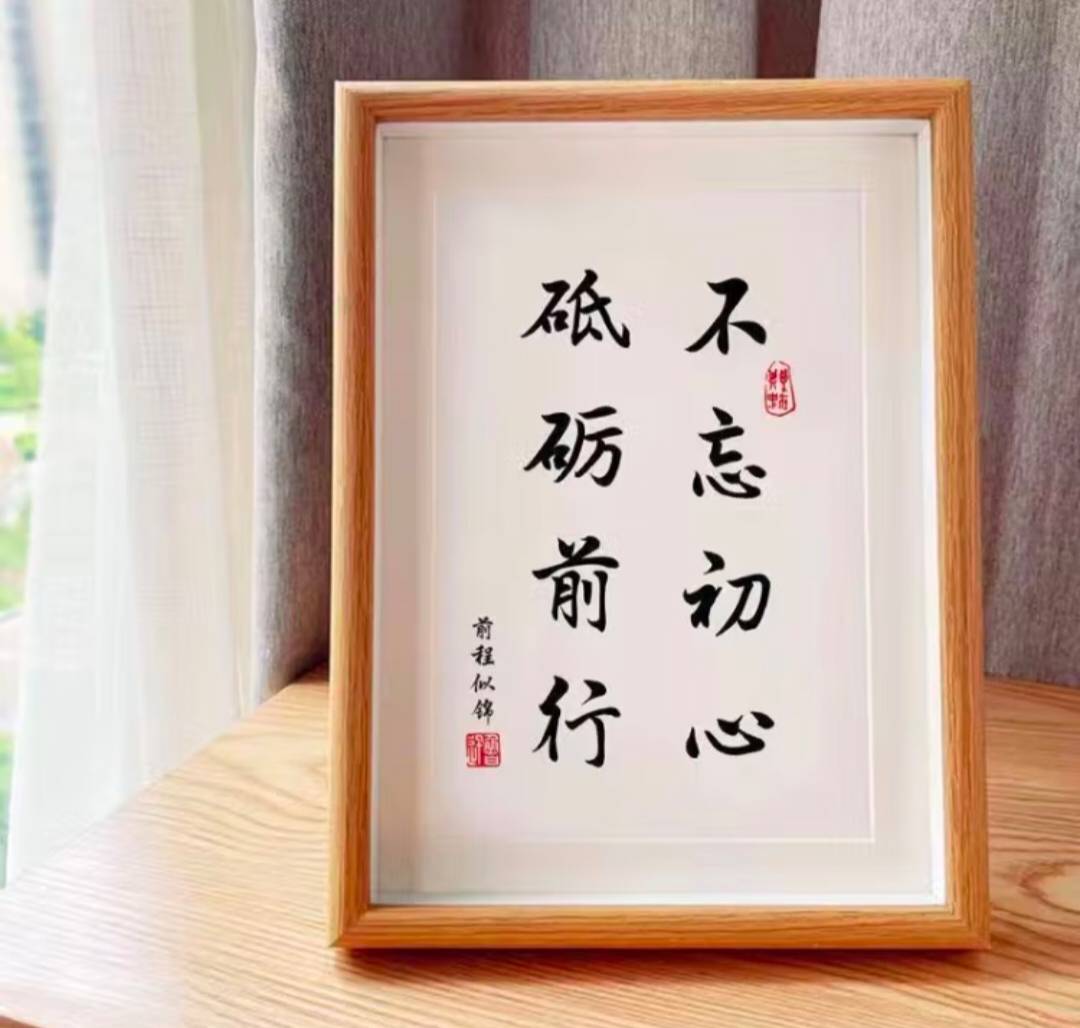 不忘初心
砥砺前行
前程似锦